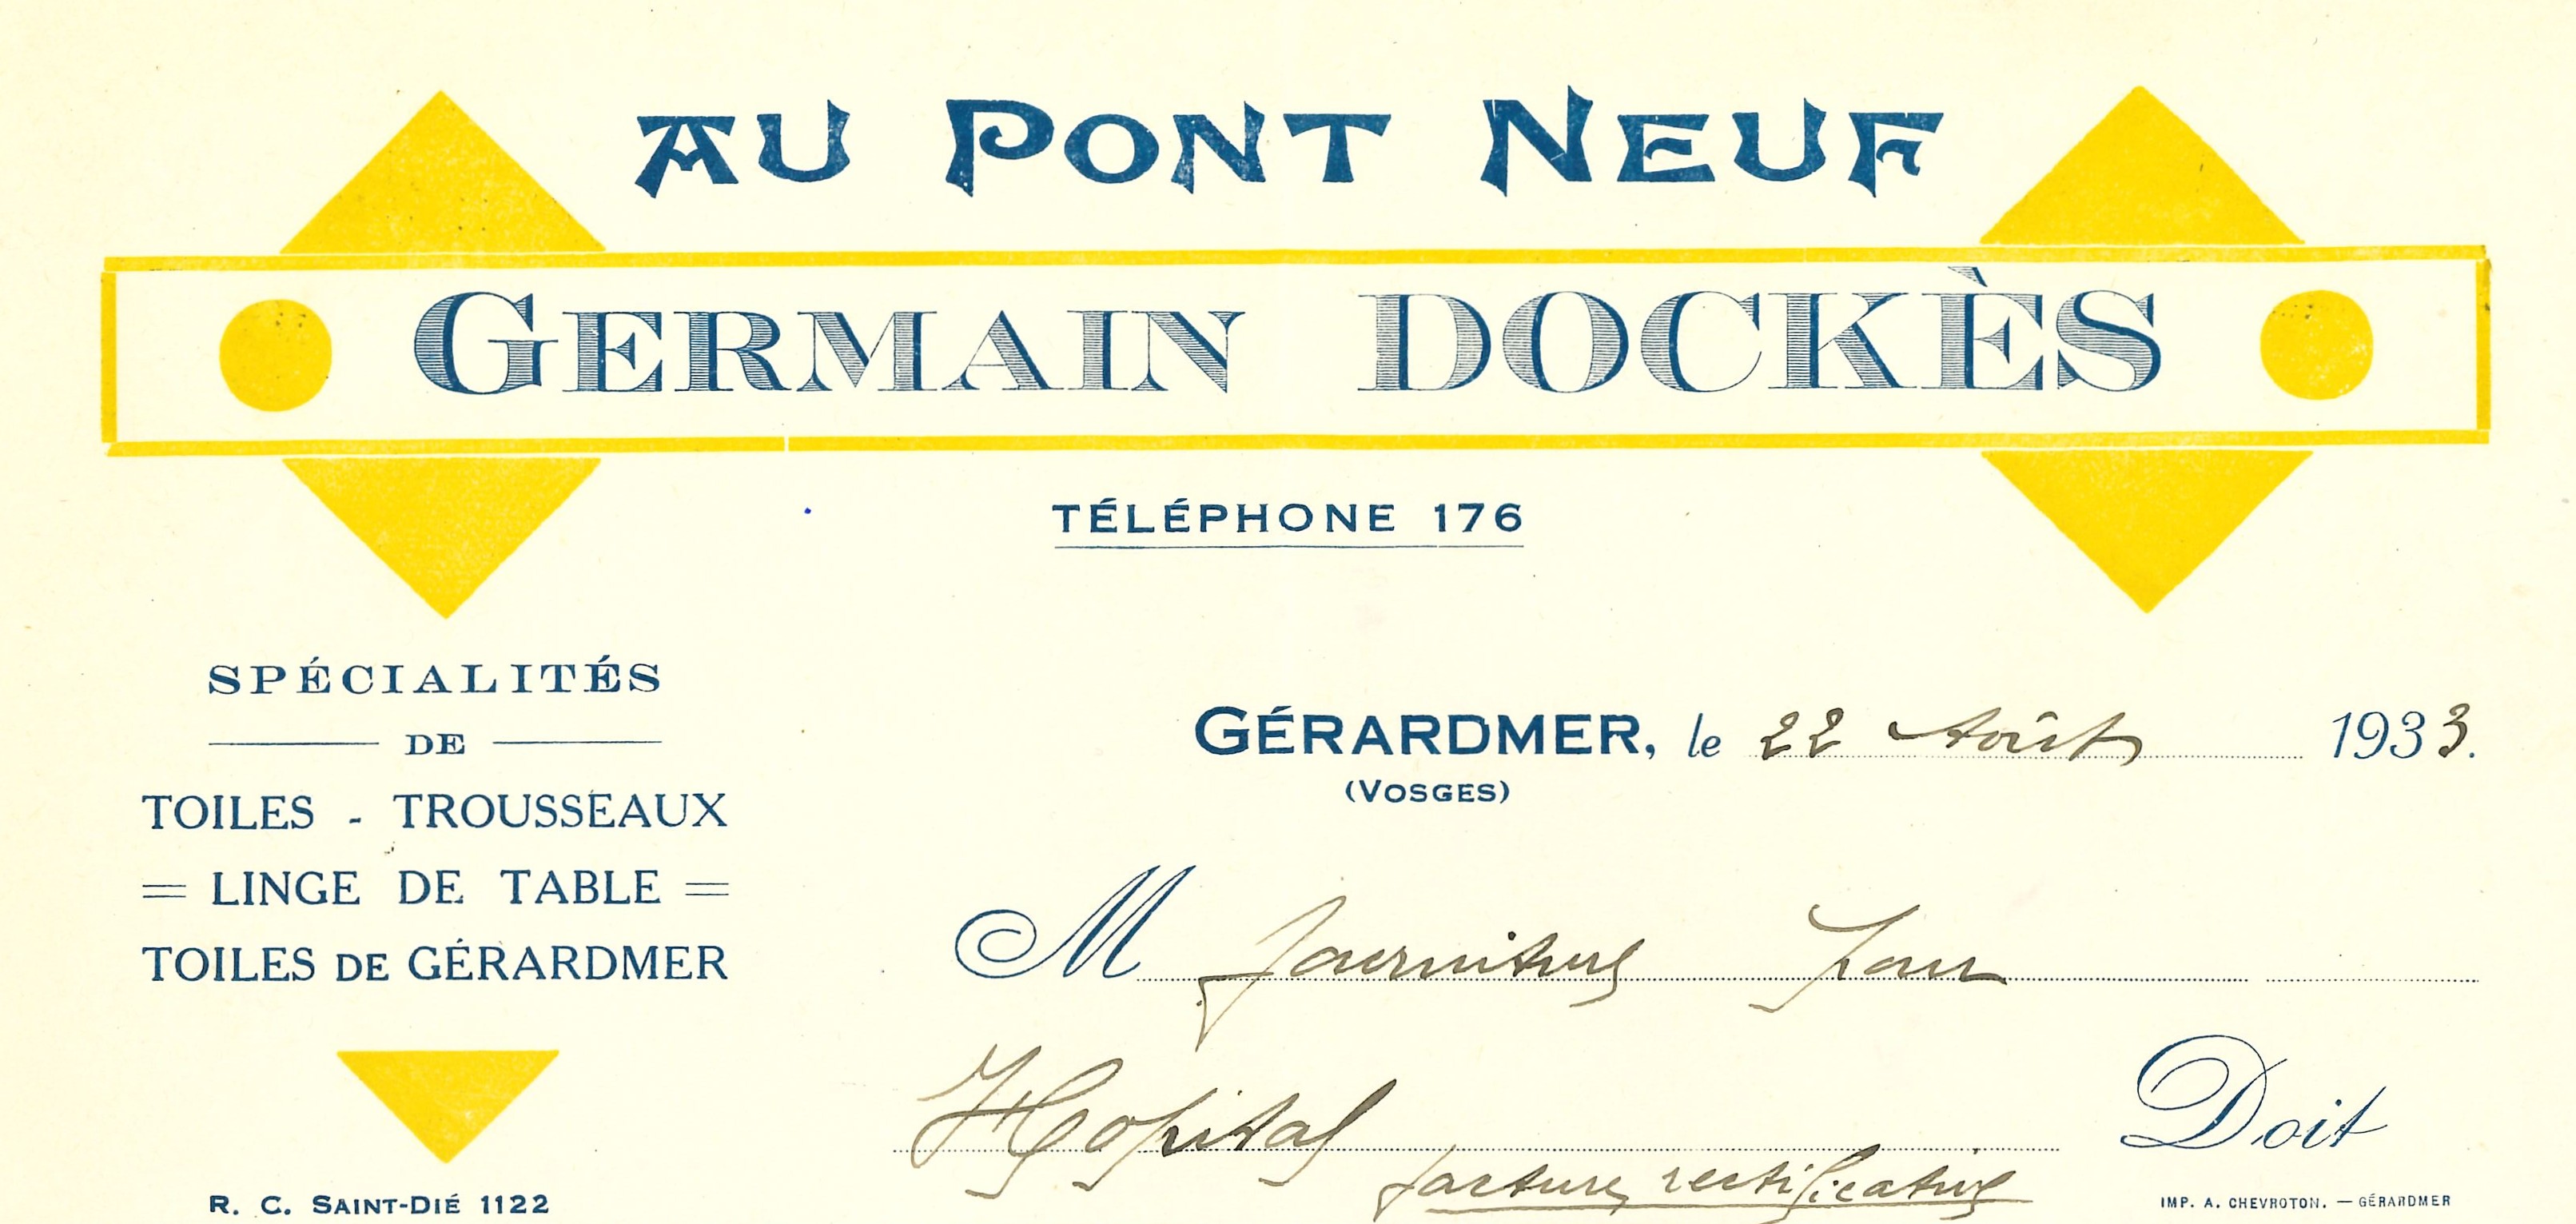 AU PONT NEUF
GERMAIN DOCKÈS
TÉLÉPHONE 176
SPÉCIALITÉS
DE
TOILES - TROUSSEAUX
= LINGE DE TABLE =
TOILES DE GÉRARDMER
R. C. SAINT-DIÉ 1122
GÉRARDMER, le 22 Août 1933.
(VOSGES)
M fourniture pour
Hopital
Doit
facture rectificative
IMP. A. CHEVROTON. — GÉRARDMER